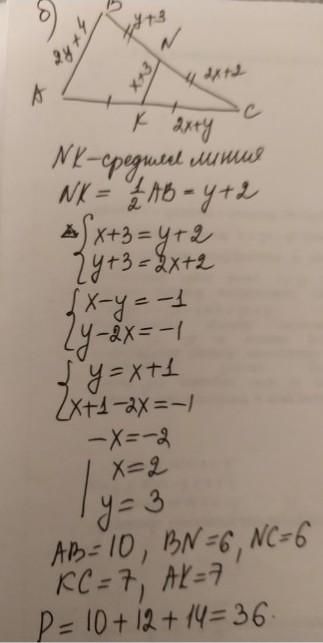 б)
B
y+3
2y+4
N
x+3
2x+2
A
K
C
2x+y
NK-средняя линия
NK = 1/2 AB = y+2
{x+3 = y+2
{y+3 = 2x+2
{x-y = -1
{y-2x = -1
{y = x+1
{x+1-2x = -1
-x = -2
| x = 2
| y = 3
AB = 10, BN = 6, NC = 6
KC = 7, AK = 7
P = 10 + 12 + 14 = 36.